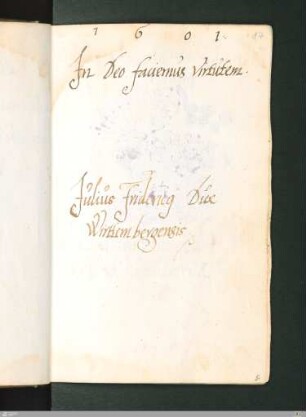 1 6 0 1
In Deo faciemus virtutem.
Julius Fridericg Dux
Wirtembergensis